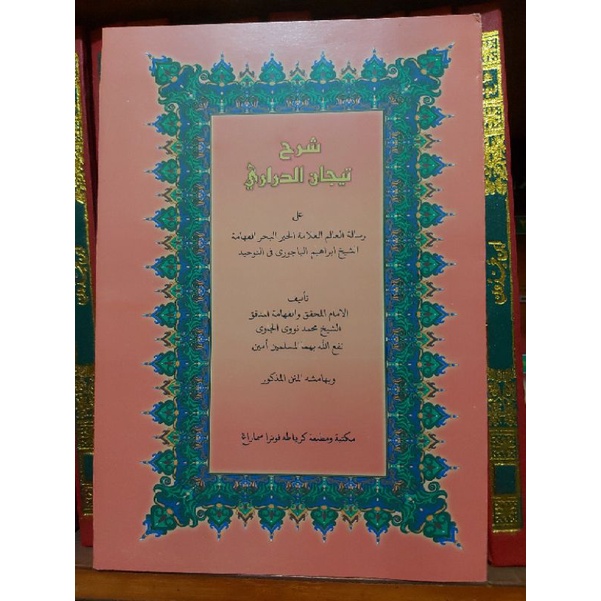 شرح
تيجان الدراري
على
رسالة العالم العلامة الحبر البحر الفهامة
الشيخ ابراهيم الباجورى فى التوحيد
تأليف
الامام المحقق والفهامة المدقق
الشيخ محمد نووى الجاوى
نفع الله بهما المسلمين أمين
وبهامشه المتن المذكور
مكتبة ومطبعة كرياطه فوترا سماراڠ